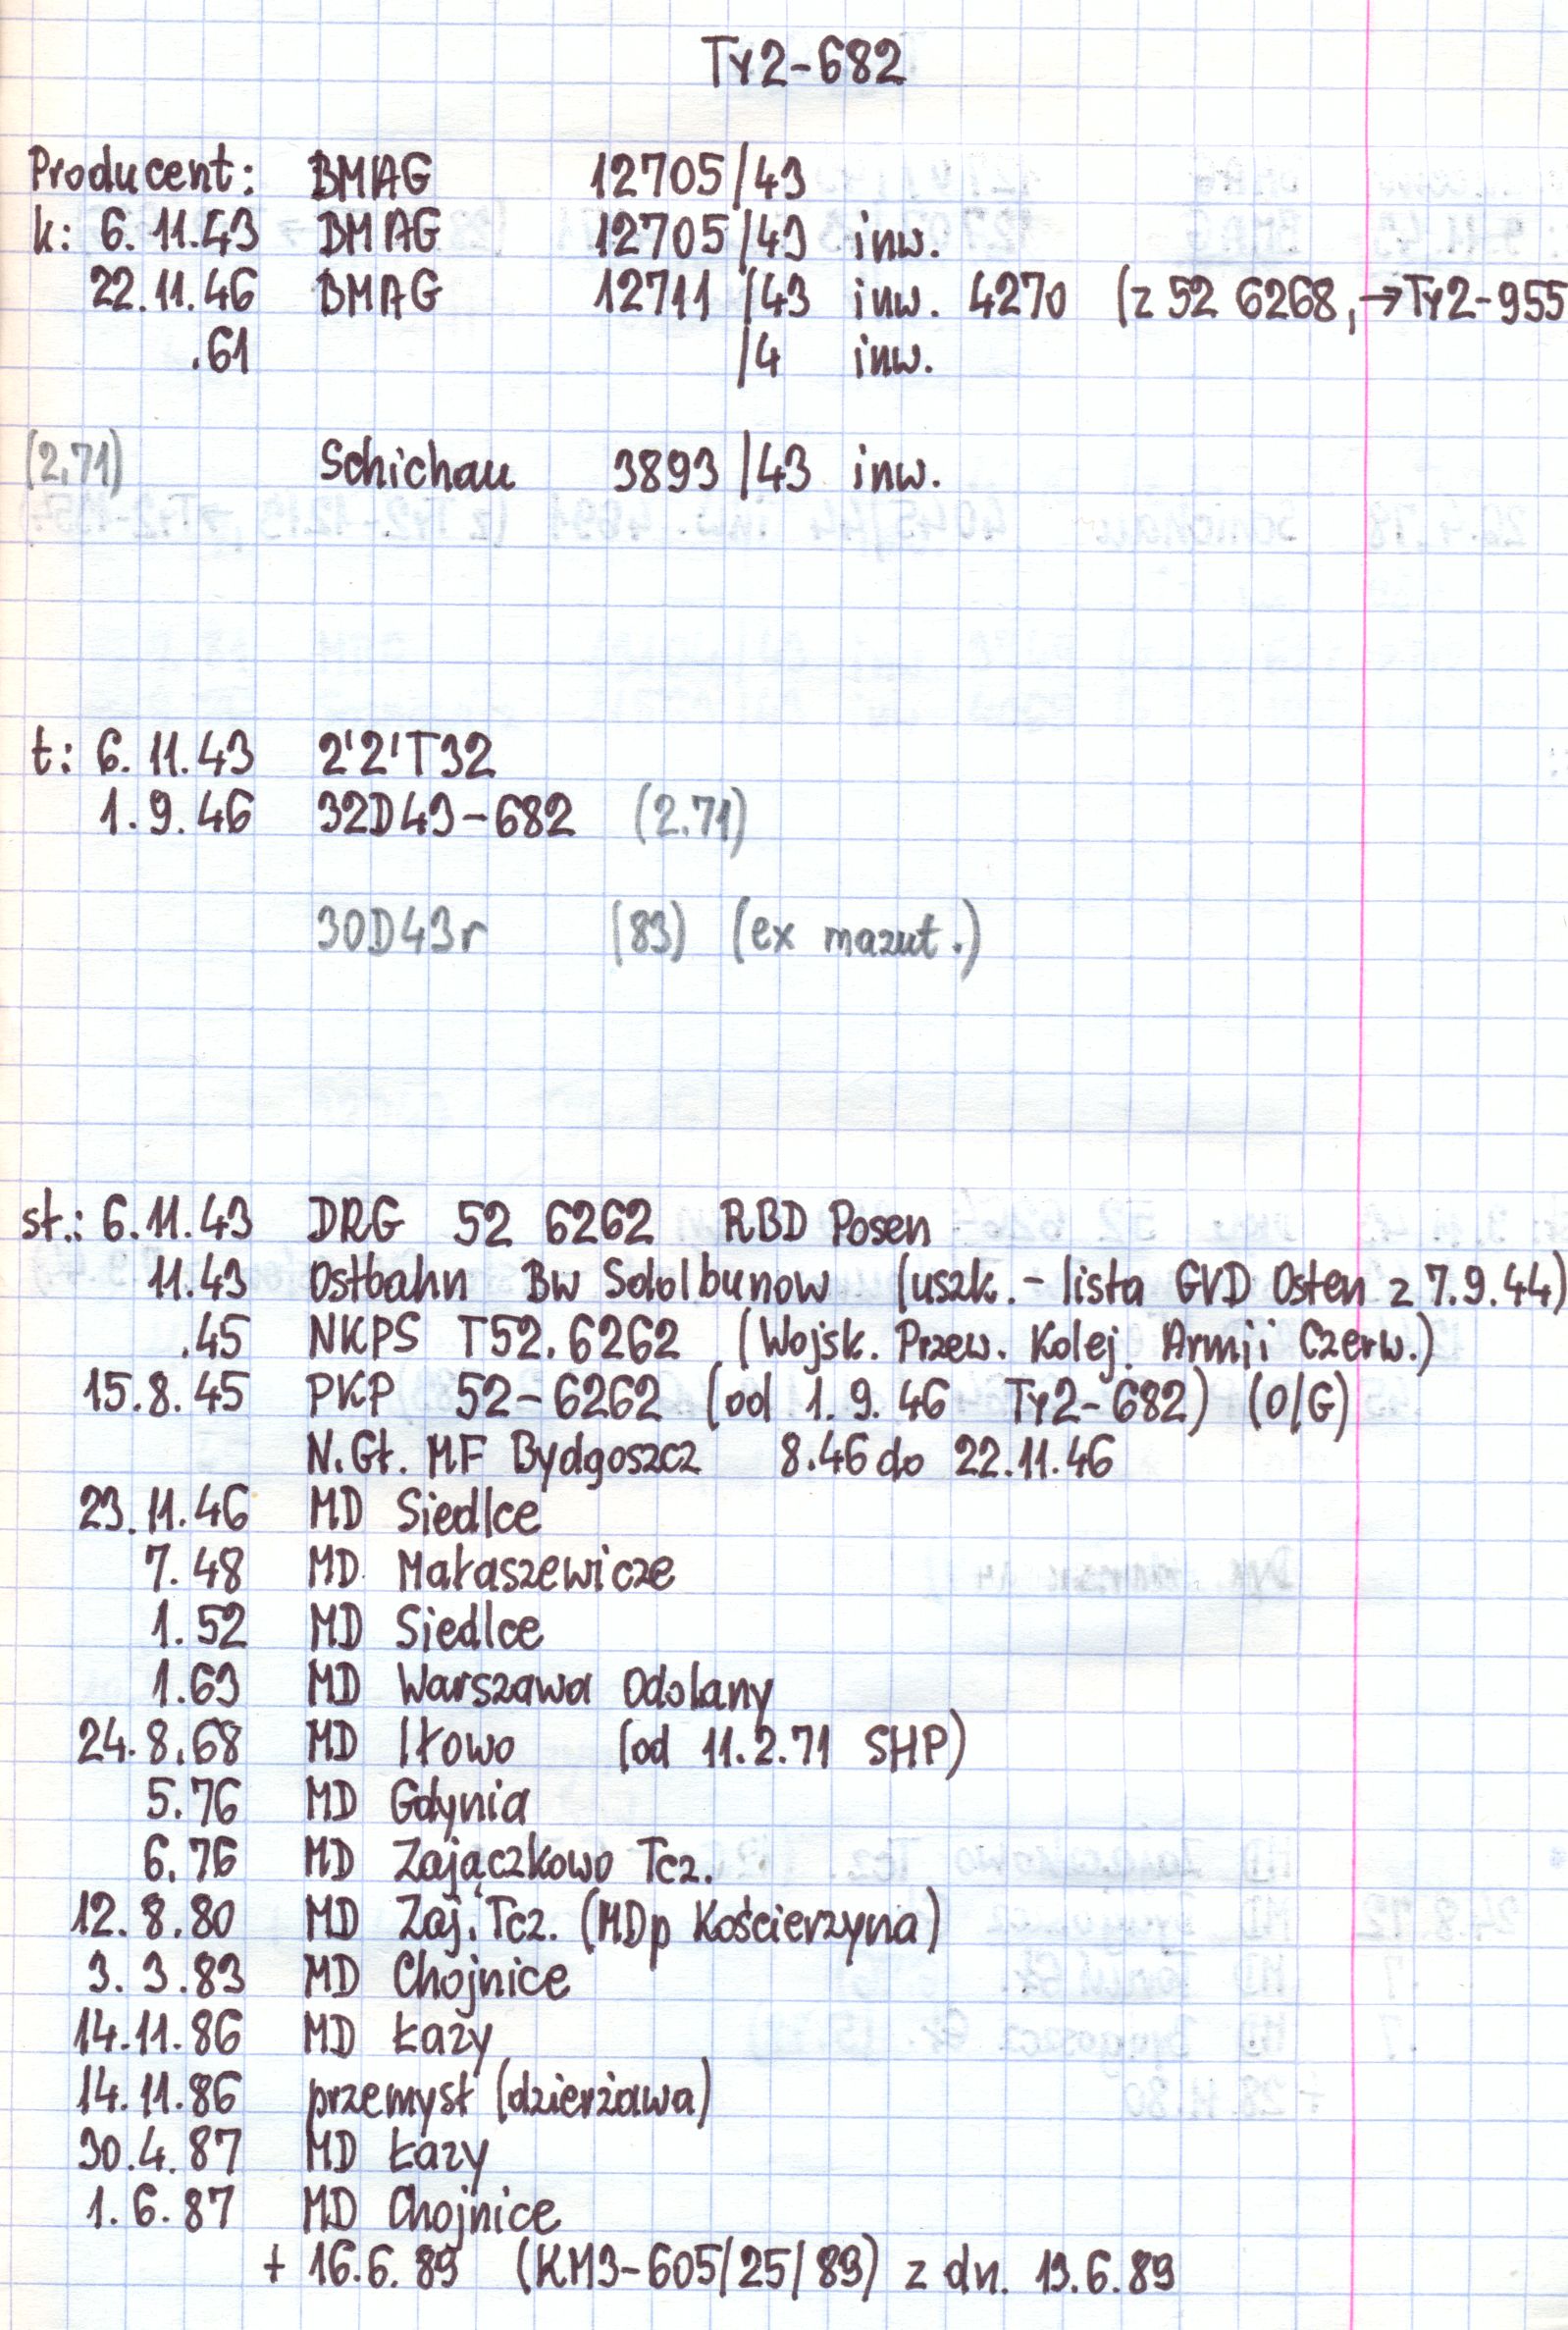 Ty2-682
Producent: BMAG 12705/43
k: 6.11.43 BMAG 12705/43 inw.
22.11.46 BMAG 12711/43 inw. 4270 (z 52 6268, →Ty2-955
.61 /4 inw.
(2.71) Schichau 3893/43 inw.
t: 6.11.43 2'2'T32
1.9.46 32D43-682 (2.71)
30D43r (83) (ex mazut.)
st.: 6.11.43 DRG 52 6262 RBD Posen
11.43 Ostbahn Bw Sdolbunow (uszk. - lista GVD Osten z 7.9.44)
.45 NKPS T52.6262 (Wojsk. Przew. Kolej. Armii Czerw.)
15.8.45 PKP 52-6262 (od 1.9.46 Ty2-682) (O/G)
N.Gł. MF Bydgoszcz 8.46 do 22.11.46
23.11.46 MD Siedlce
7.48 MD Małaszewicze
1.52 MD Siedlce
1.63 MD Warszawa Odolany
24.8.68 MD Iłowo (od 11.2.71 SHP)
5.76 MD Gdynia
6.76 MD Zajączkowo Tcz.
12.8.80 MD Zaj.Tcz. (MDp Kościerzyna)
3.3.83 MD Chojnice
14.11.86 MD Łazy
14.11.86 przemysł (dzierżawa)
30.4.87 MD Łazy
1.6.87 MD Chojnice
+ 16.6.89 (KM3-605/25/89) z dn. 13.6.89